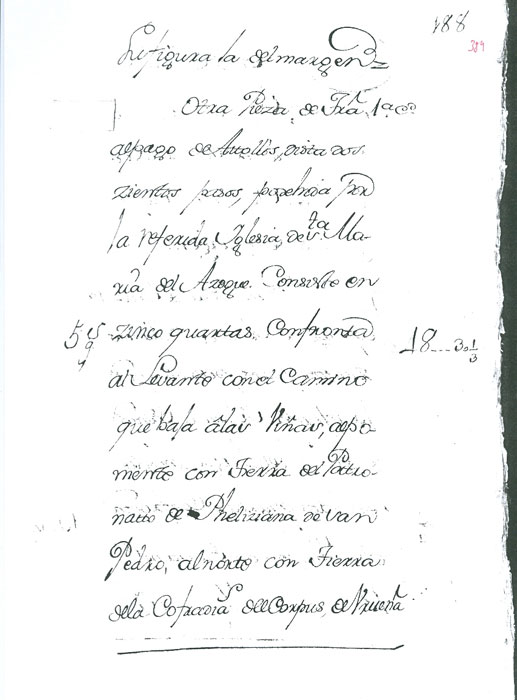 188
309
Su figura la del margen =
Otra Pieza de Trã, 1ª cd
al pago de dista dos
zientos pasos, propia por
la referida Yglesia, de Sta Ma-
ria del Azogue. Consiste en
zinco quartas. Confronta
18 - - - 3. 1/3
al Levante con el Camino
que baja a las Viñas, al po-
niente con Tierra del Patro
natto de Pheliziana de San
Pedro, al norte con Tierra
de la Cofradia del Corpus, de Urueña